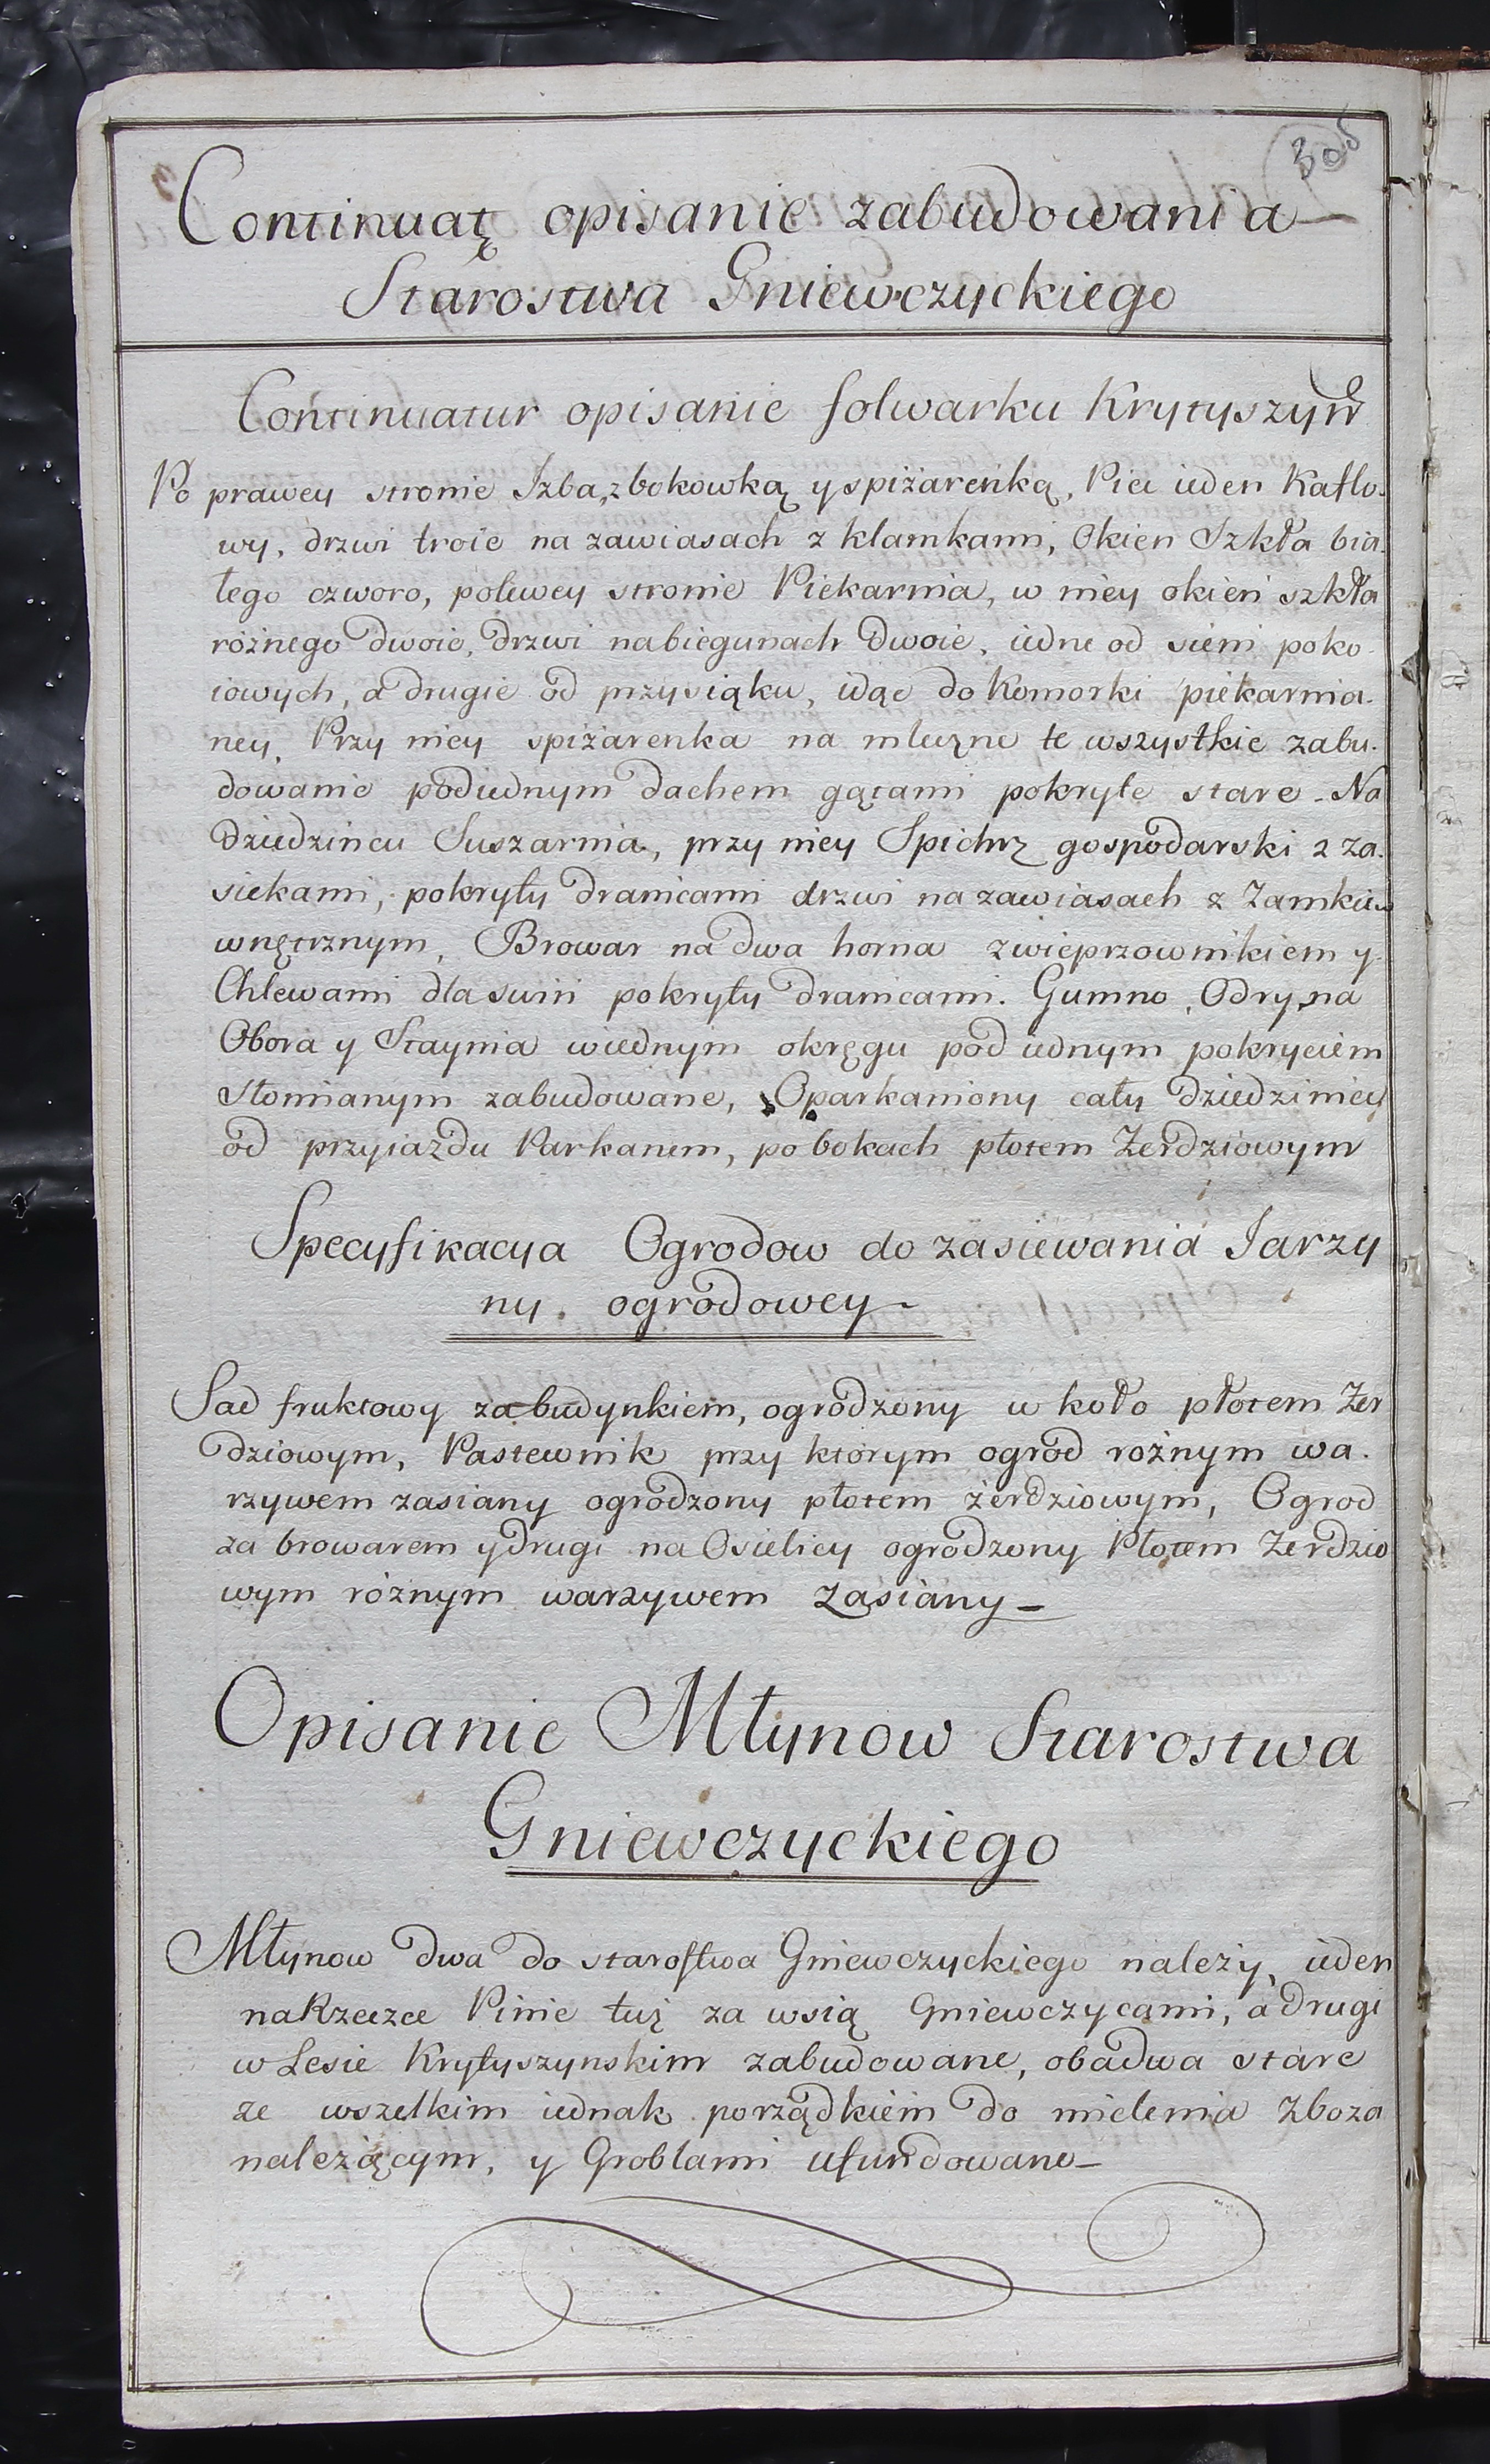 Continuatę opisanie zabudowania
Starostwa Gniewczyckiego
Continuatur opisanie folwarku Krytyszyn
Po prawey stronie Izba, z bokowką y spiżareńką, Piec ieden Kaflo-
wy, drzwi troie na zawiasach z klamkami, Okien Szkła bia-
łego czworo, polewey stronie Piekarnia, w niey okien szkła
różnego dwoie, drzwi nabiegunach dwoie, iedne od sieni poko-
iowych, a drugie od przysiąku, idąc do Komorki piekarnia-
ney, Przy niey spiżarenka na mleczne te wszystkie zabu-
dowanie podiednym dachem gątami pokryte stare - Na
Dziedzincu Suszarnia, przy niey Spichrz gospodarski z za-
siekami, pokryty dranicami drzwi na zawiasach z Zamkiem
wnętrznym, Browar na dwa horna zwieprzownikiem y
Chlewami dla swiń pokryty dranicami. Gumno, Odryna
Obora y Staynia wiednym okręgu pod iednym pokryciem
Słomianym zabudowane, Oparkaniony cały Dziedziniec
od przyiazdu Parkanem, po bokach płotem Żerdziowym
Specyfikacya Ogrodow do zasiewania Iarzy
ny ogrodowey -
Sad fruktowy za budynkiem, ogrodzony w koło płotem Żer
dziowym, Pastewnik przy którym ogrod rożnym wa-
rzywem zasiany ogrodzony płotem żerdziowym, Ogrod
za browarem y drugi na Osielicy ogrodzony Płotem Żerdzio
wym róźnym warzywem Zasiany -
Opisanie Młynow Starostwa
Gniewczyckiego
Młynow dwa do starostwa Gniewczyckiego należy, ieden
na Rzeczce Pinie tuż za wsią Gniewczycami, a drugi
w Lesie Krytyszynskim zabudowane, obadwa stare
ze wszelkim iednak porządkiem do mielenia Zboza
należącym, y Groblami ufundowane -